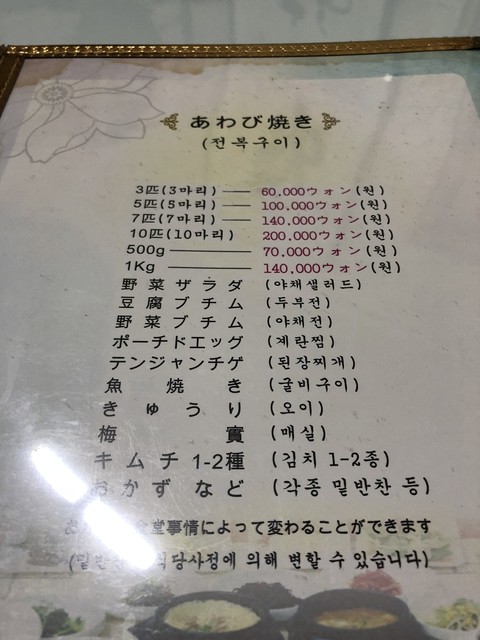 あわび焼き
(전복구이)
3匹(3마리) 60,000ウォン(원)
5匹(5마리) 100,000ウォン(원)
7匹(7마리) 140,000ウォン(원)
10匹(10마리) 200,000ウォン(원)
500g 70,000ウォン(원)
1Kg 140,000ウォン(원)
野菜サラダ (야채샐러드)
豆腐ブチム (두부전)
野菜ブチム (야채전)
ポーチドエッグ (계란찜)
テンジャンチゲ (된장찌개)
魚焼き (굴비구이)
きゅうり (오이)
梅實 (매실)
キムチ 1-2種 (김치 1-2종)
おかずなど (각종 밑반찬 등)
堂事情によって変わることができます
식당사정에 의해 변할 수 있습니다)